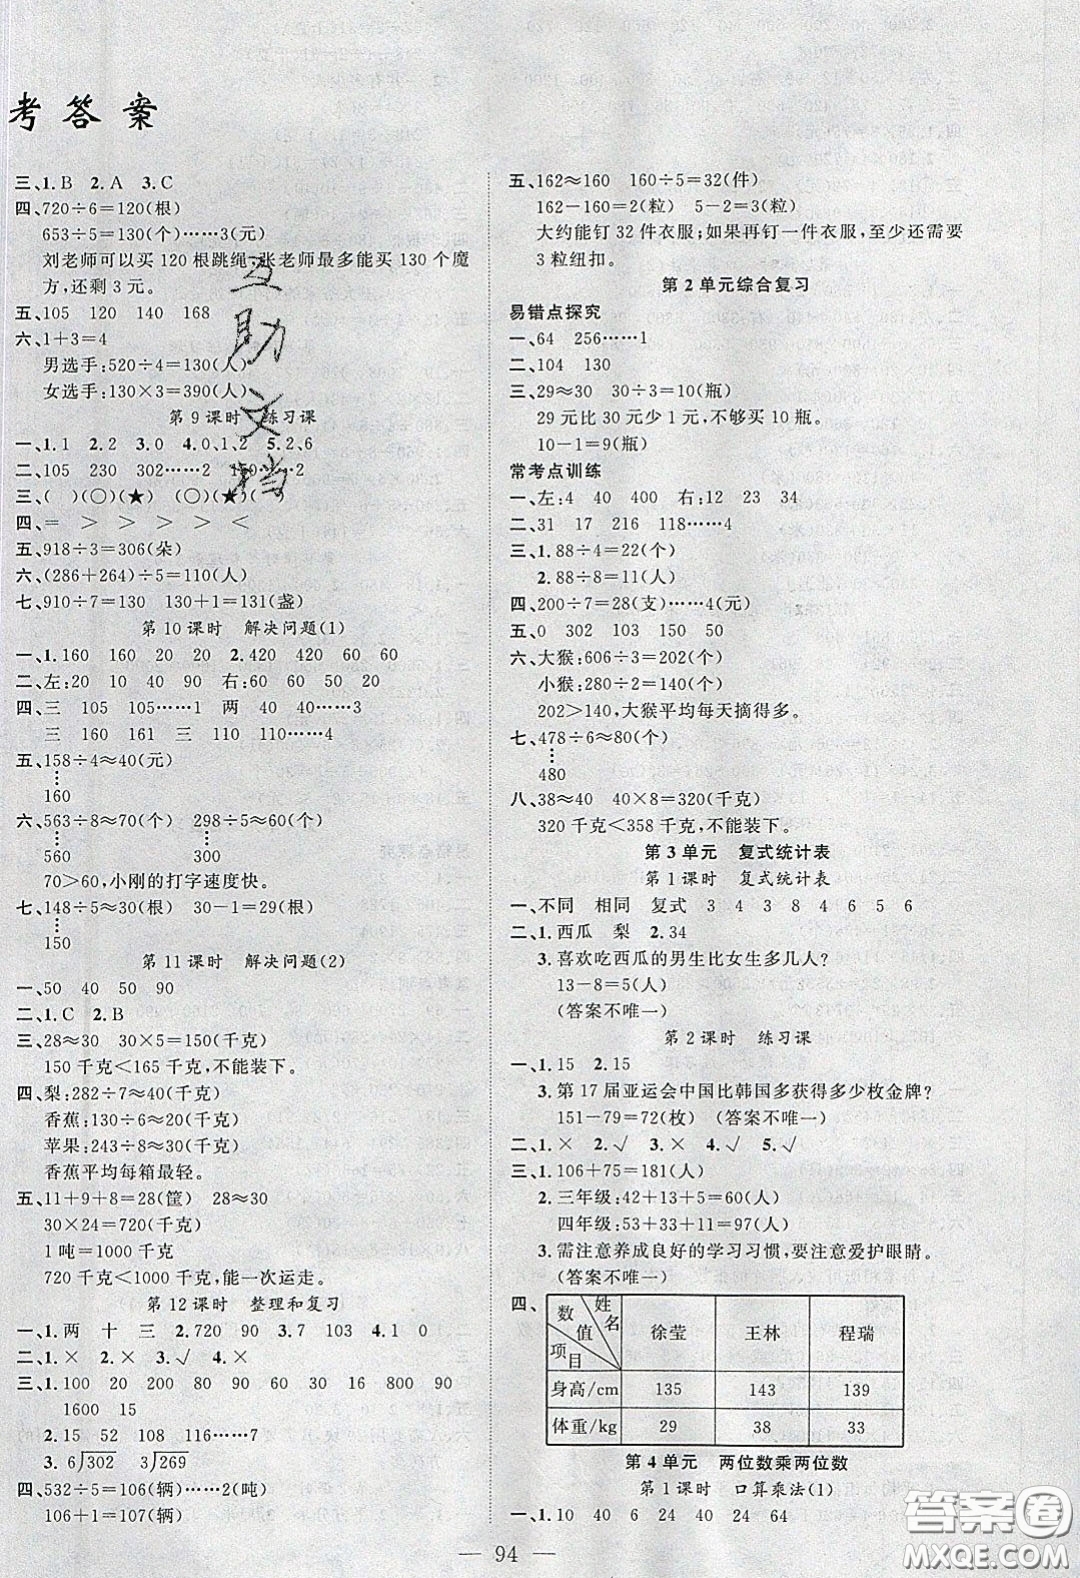 考答案
三、1.B 2.A 3.C
四、720÷6=120(根)
653÷5=130(个)……3(元)
刘老师可以买 120 根跳绳,张老师最多能买 130 个魔
方,还剩 3 元。
五、105 120 140 168
六、1+3=4
男选手:520÷4=130(人)
女选手:130×3=390(人)
第 9 课时 练习课
一、1.1 2.2 3.0 4.0,1,2 5.2,6
二、105 230 302……2 150……2
三、( )(○)(★) (○)(★)( )
四、= > > > > <
五、918÷3=306(朵)
六、(286+264)÷5=110(人)
七、910÷7=130 130+1=131(盏)
第 10 课时 解决问题(1)
一、1.160 160 20 20 2.420 420 60 60
二、左:20 10 40 90 右:60 50 70 40
四、三 105 105……1 两 40 40……3
三 160 161 三 110 110……4
五、158÷4≈40(元)
160
六、563÷8≈70(个) 298÷5≈60(个)
560 300
70>60,小刚的打字速度快。
七、148÷5≈30(根) 30-1=29(根)
150
第 11 课时 解决问题(2)
一、50 40 50 90
二、1.C 2.B
三、28≈30 30×5=150(千克)
150 千克<165 千克,不能装下。
四、梨:282÷7≈40(千克)
香蕉:130÷6≈20(千克)
苹果:243÷8≈30(千克)
香蕉平均每箱最轻。
五、11+9+8=28(筐) 28≈30
30×24=720(千克)
1 吨=1000 千克
720 千克<1000 千克,能一次运走。
第 12 课时 整理和复习
一、1.两 十 三 2.720 90 3.7 103 4.1 0
二、1.× 2.× 3.√ 4.×
三、1.100 20 200 80 90 60 30 16 800 90
1600 15
2.15 52 108 116……7
3. 6)302 3)269
四、532÷5=106(辆)……2(吨)
106+1=107(辆)
五、162≈160 160÷5=32(件)
162-160=2(粒) 5-2=3(粒)
大约能钉 32 件衣服;如果再钉一件衣服,至少还需
3 粒纽扣。
第 2 单元综合复习
易错点探究
一、64 256……1
二、104 130
三、29≈30 30÷3=10(瓶)
29 元比 30 元少 1 元,不够买 10 瓶。
10-1=9(瓶)
常考点训练
一、左:4 40 400 右:12 23 34
二、31 17 216 118……4
三、1.88÷4=22(个)
2.88÷8=11(人)
四、200÷7=28(支)……4(元)
五、0 302 103 150 50
六、大猴:606÷3=202(个)
小猴:280÷2=140(个)
202>140,大猴平均每天摘得多。
七、478÷6≈80(个)
480
八、38≈40 40×8=320(千克)
320 千克<358 千克,不能装下。
第 3 单元 复式统计表
第 1 课时 复式统计表
一、不同 相同 复式 3 4 3 8 4 6 5 6
二、1.西瓜 梨 2.34
3.喜欢吃西瓜的男生比女生多几人?
13-8=5(人)
(答案不唯一)
第 2 课时 练习课
一、1.15 2.15
3.第 17 届亚运会中国比韩国多获得多少枚金牌?
151-79=72(枚) (答案不唯一)
二、1.× 2.√ 3.× 4.√ 5.√
三、1.106+75=181(人)
2.三年级:42+13+5=60(人)
四年级:53+33+11=97(人)
3.需注意养成良好的学习习惯,要注意爱护眼睛。
(答案不唯一)
四、
数值 姓名 项目 徐莹 王林 程瑞
身高/cm 135 143 139
体重/kg 29 38 33
第 4 单元 两位数乘两位数
第 1 课时 口算乘法(1)
一、10 40 4 24 20 64
94
互助文档
答案圈
MXQE.COM